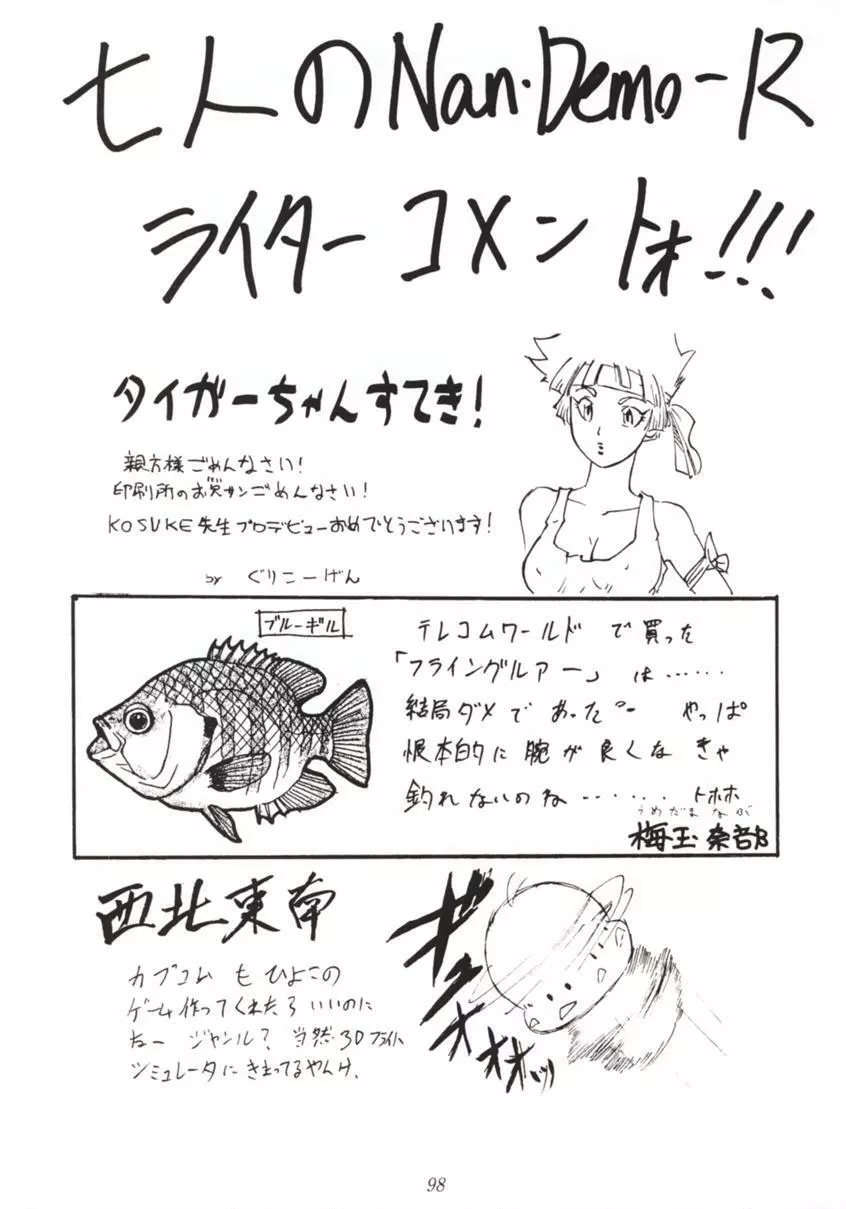 七人のNan・Demo-R
ライターコメントォ!!!
タイガーちゃんすてき!
親方様ごめんなさい!
印刷所のお賢サンごめんなさい!
KOSUKE先生プロデビューおめでとうございます!
by ぐりこーげん
ブルーギル
テレコムワールドで買った
「フライングルアー」は……
結局ダメであった。ー やっぱ
根本的に腕が良くなきゃ
釣れないのね……… トホホ
うめだまなぶ
梅玉奈部
西北東南
カプコムもひよこの
ゲーム作ってくれたらいいのに
なー ジャンル? 当然・3Dフライト
シミュレータにきまってるやんけ、
ギュオオオォッ
98